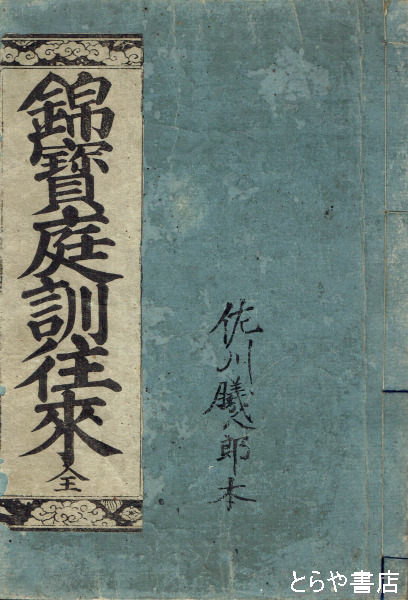 錦寶庭訓往來 全
佐川勝八郎本
とらや書店